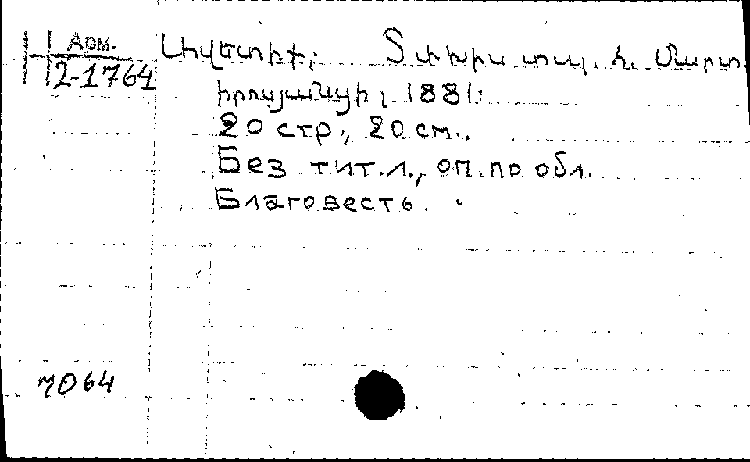 Арм.
2-1764
Աւետիք։ Տփխիս տպ. Հ. Մարտ
իրոսյանցի, 1881.
20 стр., 20 см.
Без тит.л., оп.по обл.
Благовесть.
7064